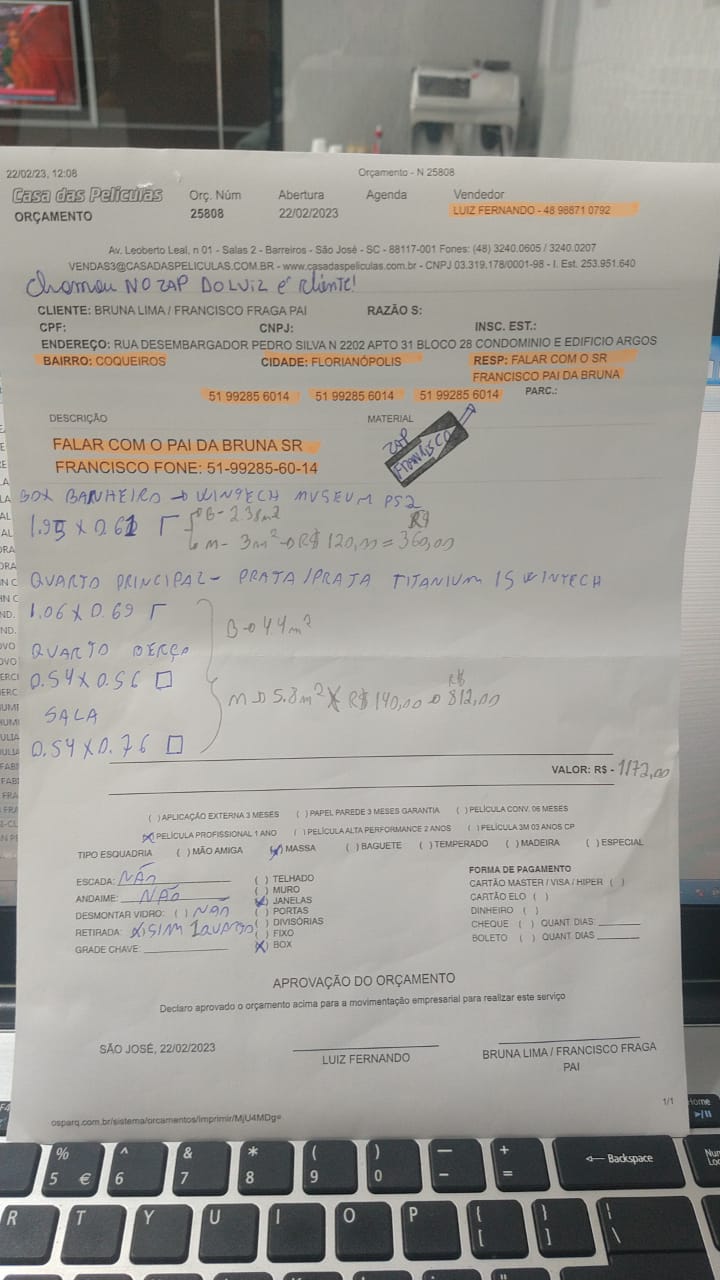 22/02/23, 12:08 Orçamento - N 25808
Casa das Películas Orç. Núm Abertura Agenda Vendedor
ORÇAMENTO 25808 22/02/2023 LUIZ FERNANDO - 48 98871 0792
Av. Leoberto Leal, n 01 - Salas 2 - Barreiros - São José - SC - 88117-001 Fones: (48) 3240.0605 / 3240.0207
VENDAS3@CASADASPELICULAS.COM.BR - www.casadaspeliculas.com.br - CNPJ 03.319.178/0001-98 - I. Est. 253.951.640
Chamou NO ZAP DO LUIZ É cliente!
CLIENTE: BRUNA LIMA / FRANCISCO FRAGA PAI RAZÃO S:
CPF: CNPJ: INSC. EST.:
ENDEREÇO: RUA DESEMBARGADOR PEDRO SILVA N 2202 APTO 31 BLOCO 28 CONDOMINIO E EDIFICIO ARGOS
BAIRRO: COQUEIROS CIDADE: FLORIANÓPOLIS RESP: FALAR COM O SR
FRANCISCO PAI DA BRUNA
51 99285 6014 51 99285 6014 51 99285 6014 PARC.:
DESCRIÇÃO MATERIAL
ZAP
FRANCISCO
FALAR COM O PAI DA BRUNA SR
FRANCISCO FONE: 51-99285-60-14
BOX BANHEIRO → WINTECH MUSEUM PS2
1.95 X 0.61 B - 2.38m²
M - 3m² → R$ 120,00 = R$ 360,00
QUARTO PRINCIPAL - PRATA/PRATA TITANIUM 15 WINTECH
1.06 X 0.69
B → 4.4m²
QUARTO BERÇO
0.54 X 0.56
M → 5.8m² X R$ 140,00 → R$ 812,00
SALA
0.54 X 0.76
VALOR: R$ - 1172,00
( ) APLICAÇÃO EXTERNA 3 MESES ( ) PAPEL PAREDE 3 MESES GARANTIA ( ) PELÍCULA CONV. 06 MESES
(X) PELÍCULA PROFISSIONAL 1 ANO ( ) PELÍCULA ALTA PERFORMANCE 2 ANOS ( ) PELÍCULA 3M 03 ANOS CP
TIPO ESQUADRIA ( ) MÃO AMIGA (X) MASSA ( ) BAGUETE ( ) TEMPERADO ( ) MADEIRA ( ) ESPECIAL
ESCADA: NÃO ( ) TELHADO FORMA DE PAGAMENTO
( ) MURO CARTÃO MASTER / VISA / HIPER ( )
ANDAIME: NÃO (X) JANELAS CARTÃO ELO ( )
DESMONTAR VIDRO: ( ) NÃO ( ) PORTAS DINHEIRO ( )
( ) DIVISÓRIAS CHEQUE ( ) QUANT. DIAS:
RETIRADA: (X) SIM 1 QUARTO ( ) FIXO BOLETO ( ) QUANT. DIAS
GRADE CHAVE: (X) BOX
APROVAÇÃO DO ORÇAMENTO
Declaro aprovado o orçamento acima para a movimentação empresarial para realizar este serviço
SÃO JOSÉ, 22/02/2023
LUIZ FERNANDO BRUNA LIMA / FRANCISCO FRAGA
PAI
1/1
osparq.com.br/sistema/orcamentos/imprimir/MjU4MDg=
F4 Home
% ^ & * ( ) — + ← Backspace Num
5 € 6 7 8 9 0 - = Loc
R T Y U I O P { [ } ] | \